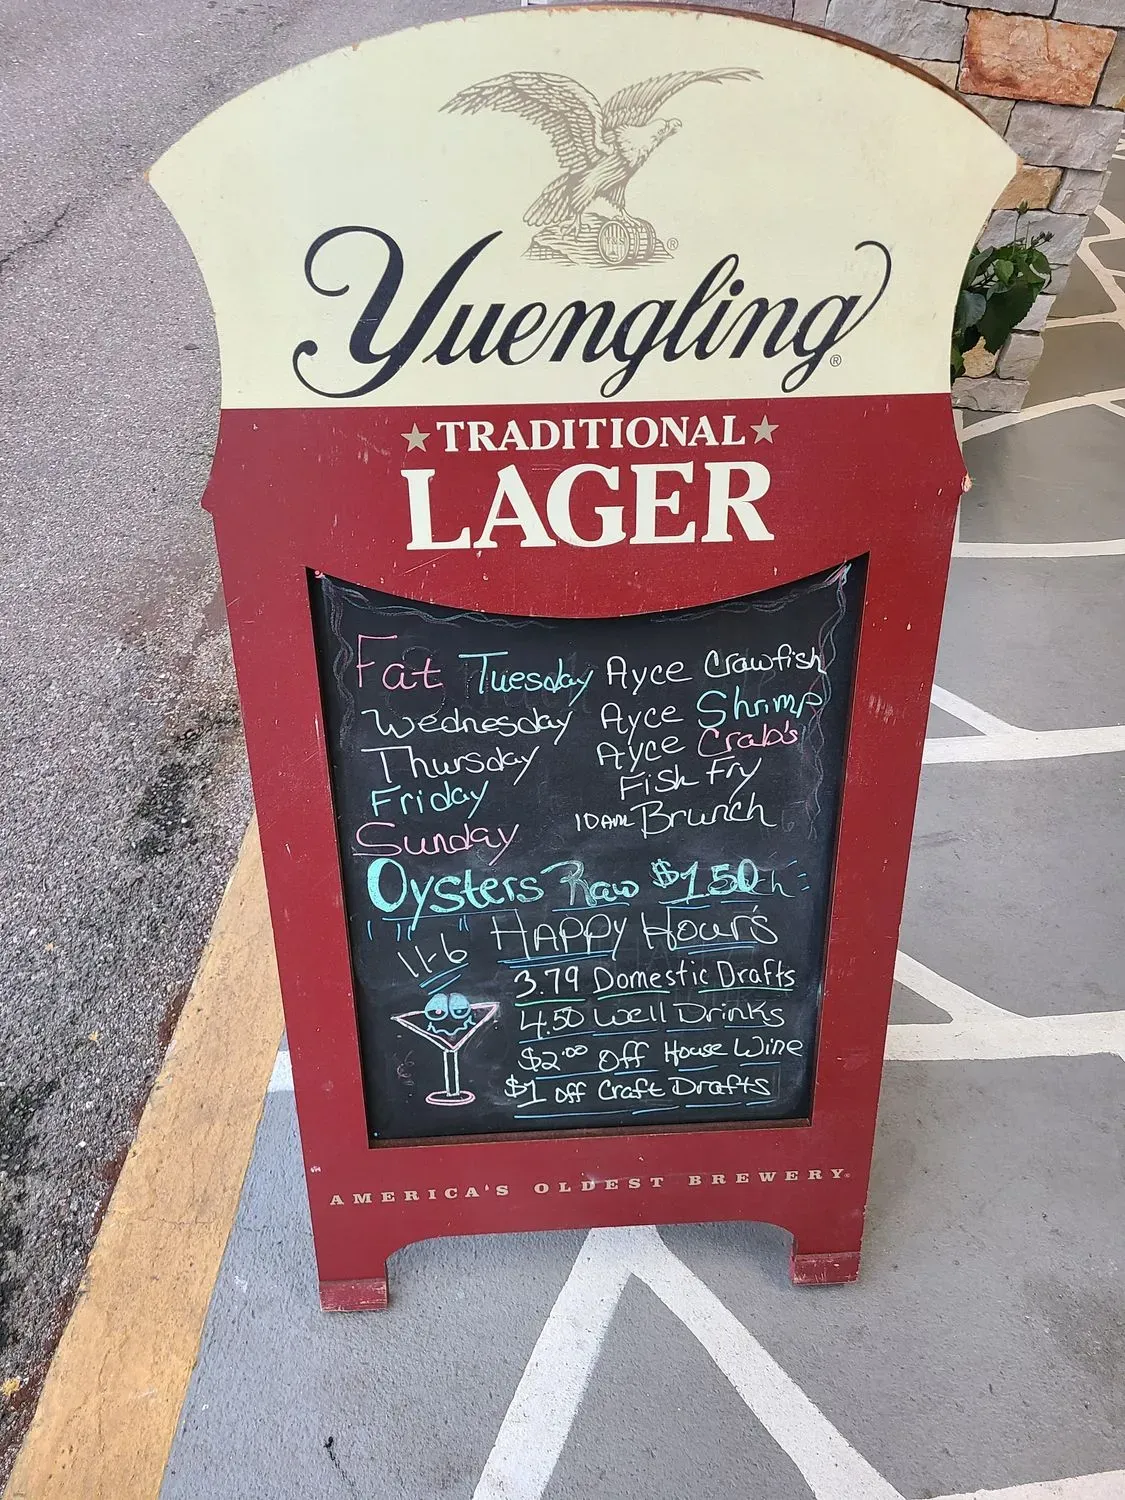 Yuengling®
TRADITIONAL
LAGER
Fat Tuesday Ayce Crawfish
Wednesday Ayce Shrimp
Thursday Ayce Crab's
Friday Fish Fry
Sunday 10AM Brunch
Oysters Raw $1.50
11-6 Happy Hour's
3.79 Domestic Drafts
4.50 Well Drinks
$2.00 Off House Wine
$1 Off Craft Drafts
AMERICA'S OLDEST BREWERY®